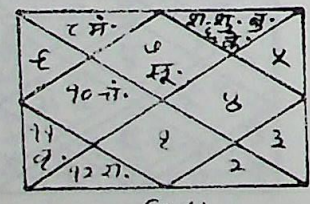 ८ मं. श. शु. बु.
७ ६ के.
९ सू. ५
१० चं. ४
११ १ ३
बृ. १२ रा. २